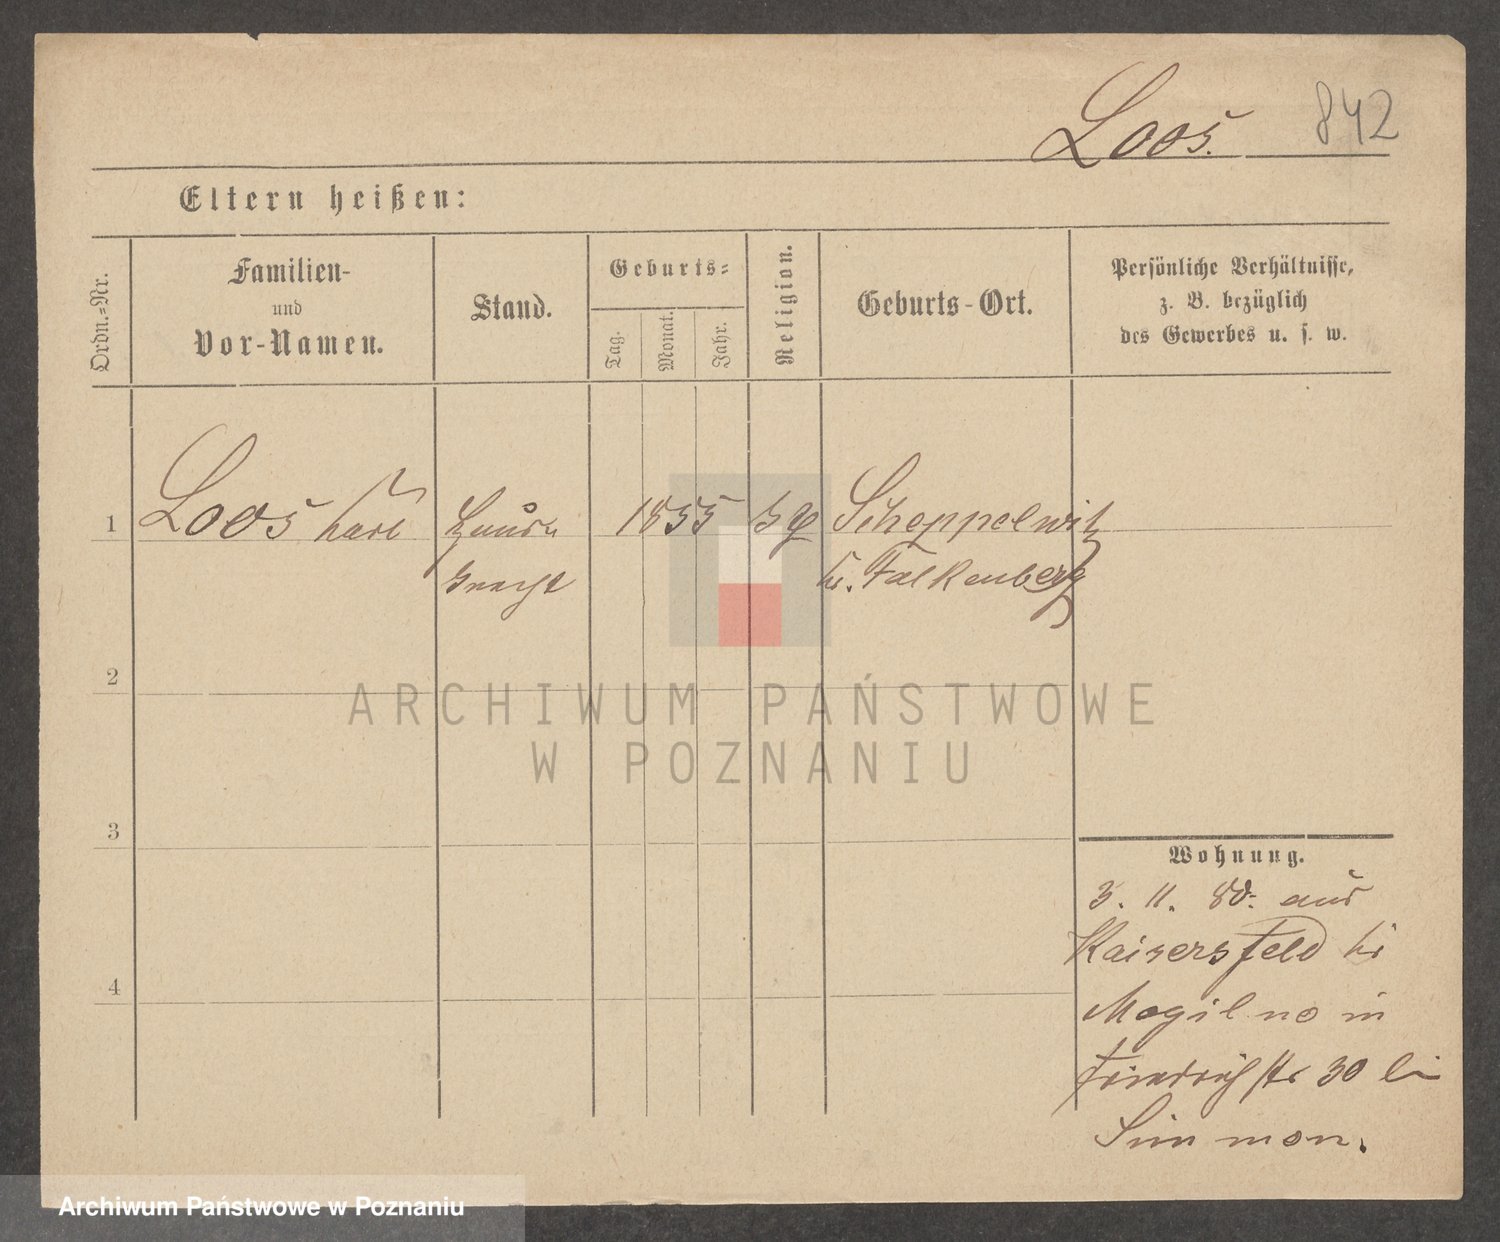 Loos.
842
Eltern heißen:
Ordn.-Nr.
Familien-
und
Vor-Namen.
Stand.
Geburts-
Tag.
Monat.
Jahr.
Religion.
Geburts-Ort.
Persönliche Verhältnisse,
z. B. bezüglich
des Gewerbes u. s. w.
1
Loos Karl
Haus-
knecht
1855
Schoppelwitz
Kr. Falkenberg
2
ARCHIWUM PAŃSTWOWE
W POZNANIU
3
4
Wohnung.
3. 11. 80. aus
Kaisersfeld Kr
Mogilno in
Friedrichstr 30 bei
Simmon.
Archiwum Państwowe w Poznaniu